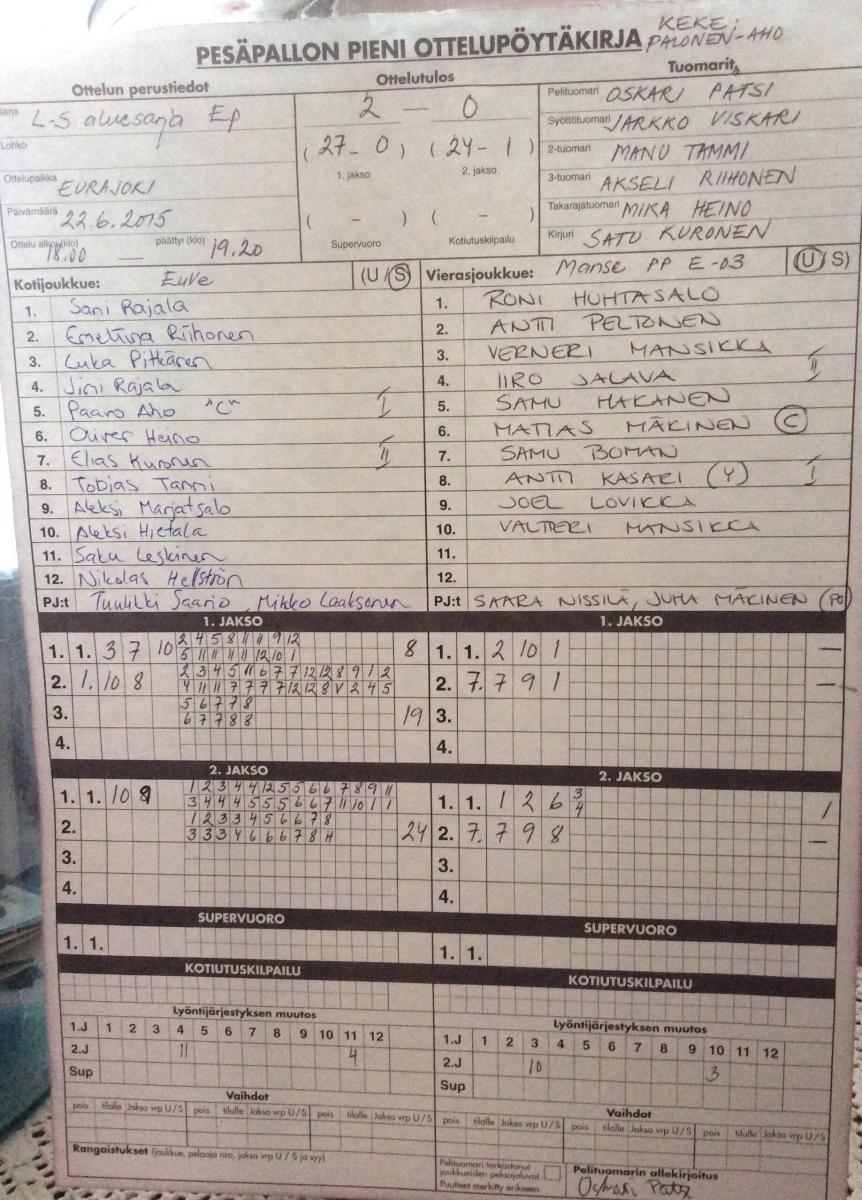 KEKE;
PESÄPALLON PIENI OTTELUPÖYTÄKIRJA PALONEN-AHO
Ottelun perustiedot
Sarja L-S aluesarja Ep
Lohko
Ottelupaikka EURAJOKI
Päivämäärä 22.6.2015
Ottelu alkoi (klo) 18.00 — päättyi (klo) 19.20
Ottelutulos
2 — 0
(27 - 0) (24 - 1)
1. jakso 2. jakso
( - ) ( - )
Supervuoro Kotiutuskilpailu
Tuomarit
Pelituomari OSKARI PATSI
Syöttötuomari JARKKO VISKARI
2-tuomari MANU TAMMI
3-tuomari AKSELI RIIHONEN
Takarajatuomari MIKA HEINO
Kirjuri SATU KURONEN
Kotijoukkue: EuVe (U/S)
1. Sani Rajala
2. Emeltiina Riihonen
3. Luka Pitkänen
4. Jimi Rajala
5. Paavo Aho "C" I
6. Oliver Heino
7. Elias Kuronen II
8. Tobias Tammi
9. Aleksi Marjatsalo
10. Aleksi Hietala
11. Saku Leskinen
12. Nikolas Hellström
PJ:t Tuulikki Saario, Mikko Laaksonen
Vierasjoukkue: Manse PP E-03 (U/S)
1. RONI HUHTASALO
2. ANTTI PELTONEN
3. VERNERI MANSIKKA
4. IIRO JALAVA II
5. SAMU HAKANEN
6. MATIAS MÄKINEN (C)
7. SAMU BOMAN
8. ANTTI KASARI (Y) I
9. JOEL LOVIKKA
10. VALTTERI MANSIKKA
11.
12.
PJ:t SAARA NISSILÄ, JUHA MÄKINEN (PO)
1. JAKSO
2 4 5 8 11 11 9 12
1. 1. 3 7 10 5 11 11 11 11 12 10 1 8
2 3 4 5 11 6 7 7 12 12 8 9 1 2
2. 1. 10 8 4 11 11 7 7 7 7 12 12 8 V 2 4 5
5 6 7 7 8
3. 6 7 7 8 8 19
4.
1. JAKSO
1. 1. 2 10 1 —
2. 7. 7 9 1 —
3.
4.
2. JAKSO
1 2 3 4 4 12 5 5 6 6 7 8 9 11
1. 1. 10 9 3 4 4 4 5 5 5 6 6 7 11 10 1 1
1 2 3 3 4 5 6 6 7 8
2. 3 3 3 4 6 6 6 7 8 H 24
3.
4.
2. JAKSO
1. 1. 1 2 6 3 4 1
2. 7. 7 9 8 —
3.
4.
SUPERVUORO
1. 1.
SUPERVUORO
1. 1.
KOTIUTUSKILPAILU
KOTIUTUSKILPAILU
Lyöntijärjestyksen muutos
1.J 1 2 3 4 5 6 7 8 9 10 11 12
2.J 11 4
Sup
Lyöntijärjestyksen muutos
1.J 1 2 3 4 5 6 7 8 9 10 11 12
2.J 10 3
Sup
Vaihdot
pois tilalle Jakso vrp U/S pois tilalle Jakso vrp U/S pois tilalle Jakso vrp U/S
Vaihdot
pois tilalle Jakso vrp U/S pois tilalle Jakso vrp U/S pois tilalle Jakso vrp U/S
Rangaistukset (joukkue, pelaaja nro, jakso vrp U / S ja syy)
Pelituomari tarkastanut
joukkueiden pelaajaluvat
Puutteet merkitty erikseen.
Pelituomarin allekirjoitus
Oskari Patsi